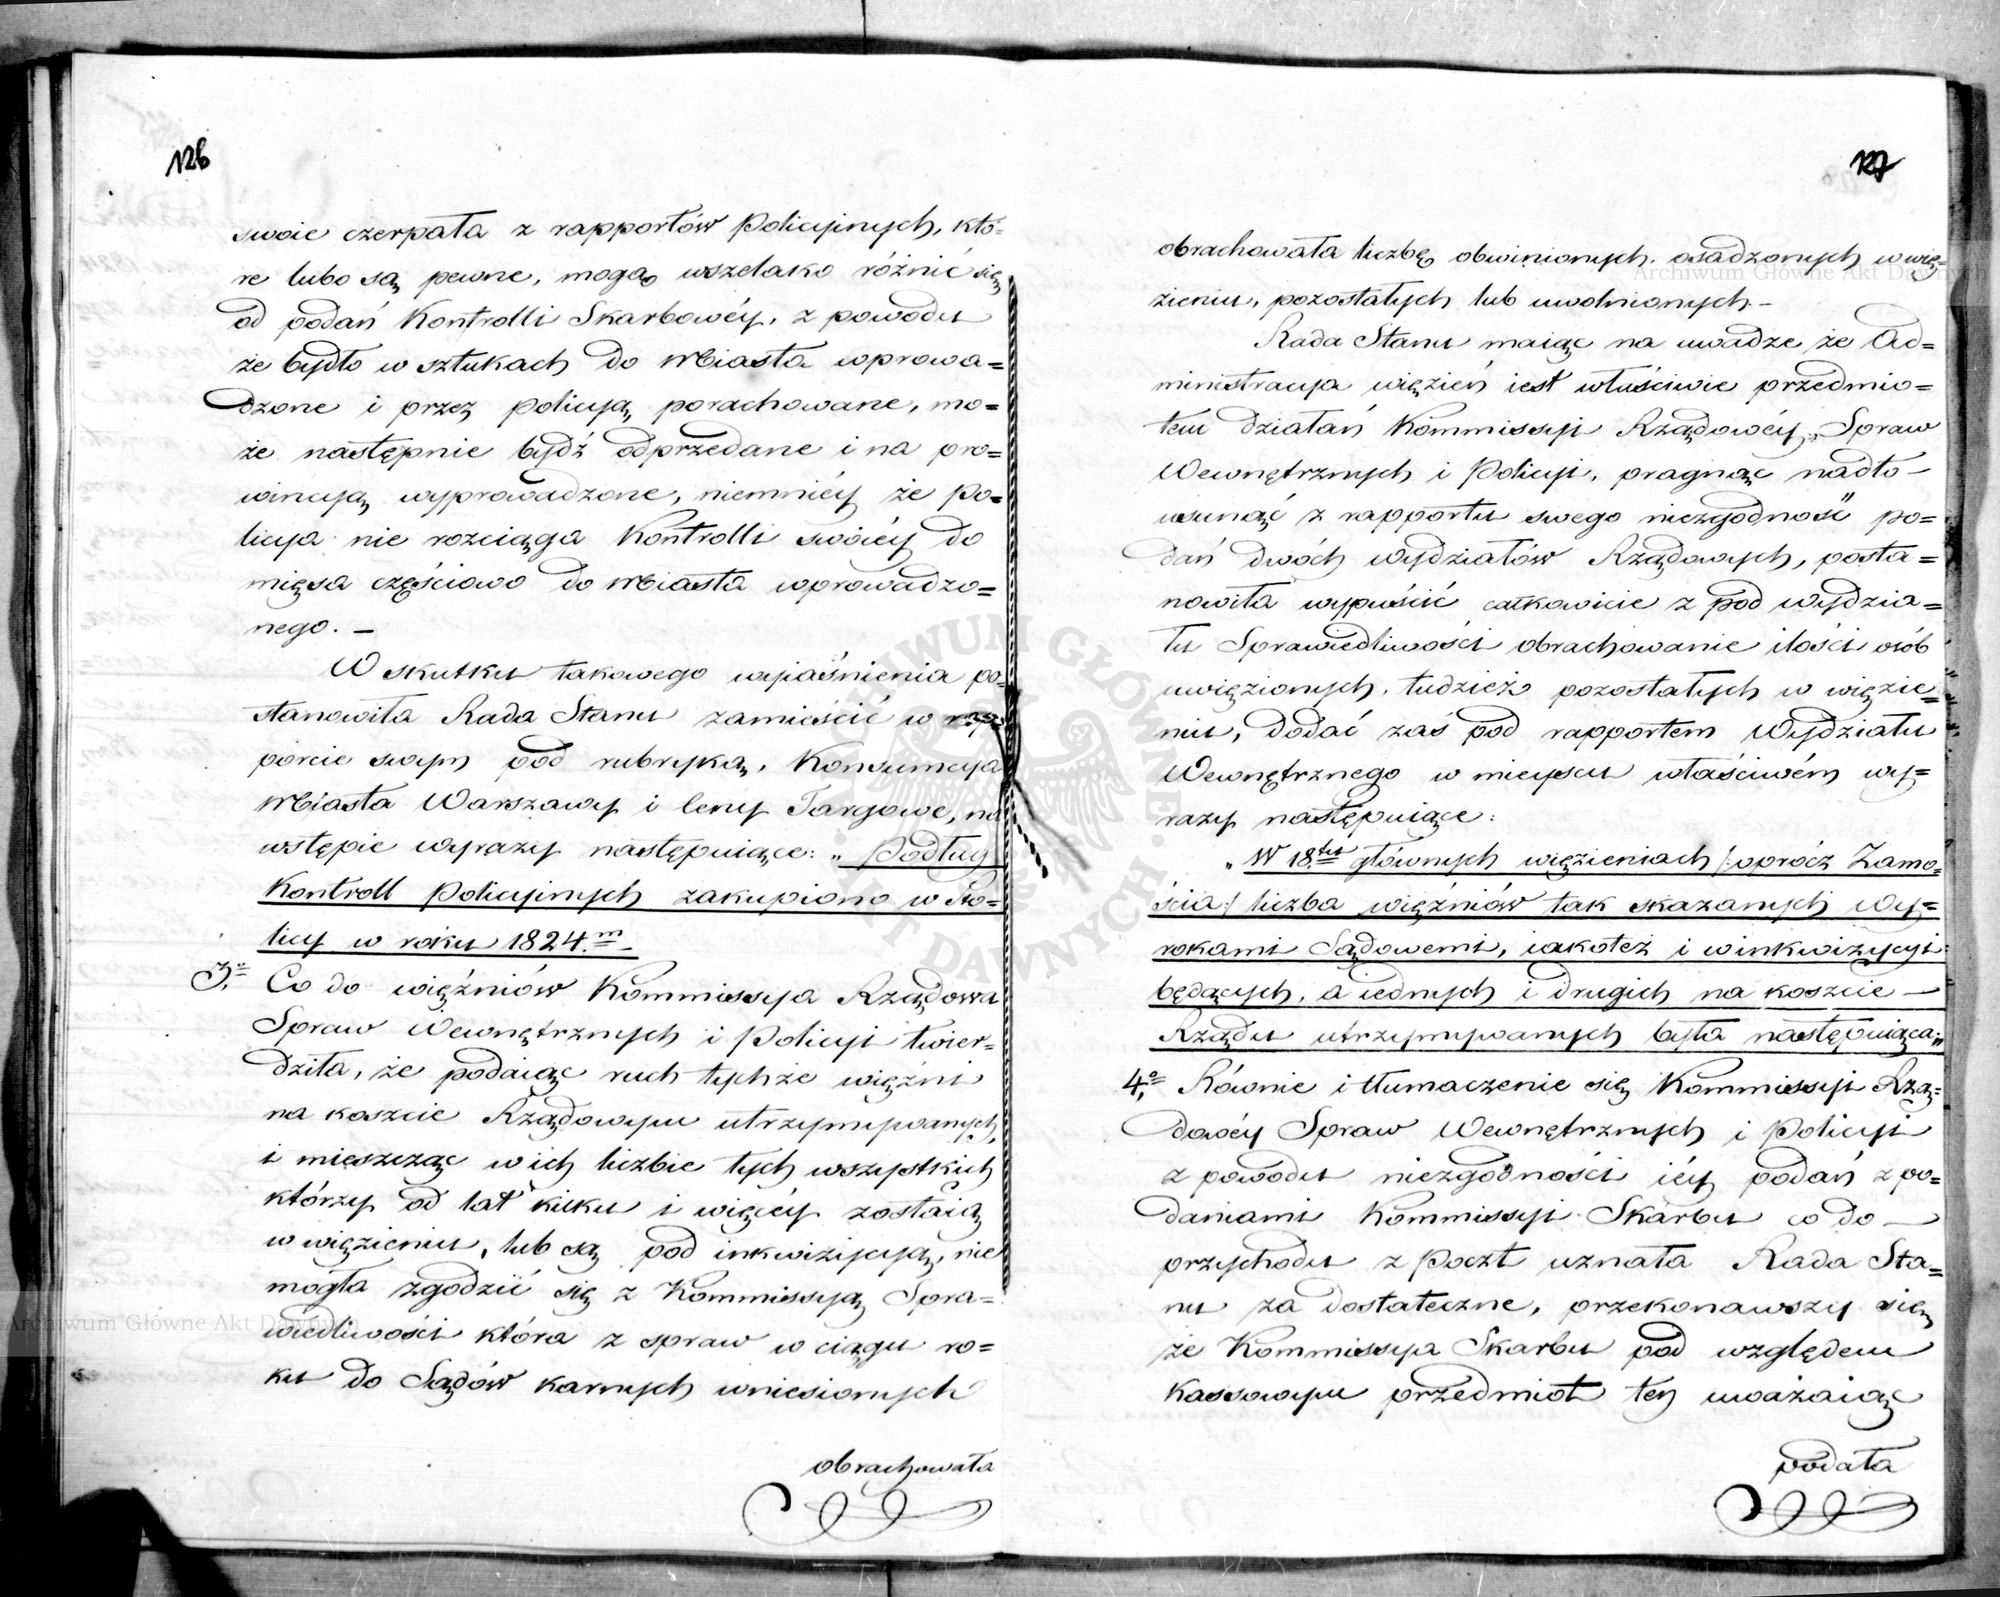 126
swoie czerpała z rapportów Policyinych, któ=
re lubo są pewne, mogą wszelako różnić się
od podań Kontrolli Skarbowéy, z powodu
że bydło w sztukach do Miasta wprowa=
dzone i przez policyą porachowane, mo=
że następnie bydź odprzedane i na pro=
wincyą wyprowadzone, niemniéy że Po=
licya nie rozciąga Kontrolli swoiéy do
mięsa częściowo do Miasta wprowadzo=
nego. —
W skutku takowego wyiaśnienia po=
stanowiła Rada Stanu zamieścić w rap=
porcie swym pod rubryką, Konsumcya
Miasta Warszawy i Ceny Targowe, na
wstępie wyrazy następuiące: „Podług
Kontroll Policyinych zakupiono w Sto=
licy w roku 1824.m
3.° Co do więźniów Kommissya Rządowa
Spraw Wewnętrznych i Policyi twier=
dziła, że podaiąc ruch tychże więźni
na koszcie Rządowym utrzymywanych,
i mieszcząc w ich liczbie tych wszystkich
którzy od lat kilku i więcéy zostaią
w więzieniu, lub są pod inkwizycyą, nie
mogła zgodzić się z Kommissyą Spra=
wiedliwości która z spraw w ciągu ro=
ku do Sądów karnych wniesionych
obrachowała
127
obrachowała liczbę obwinionych, osadzonych w wię=
zieniu, pozostałych lub uwolnionych —
Rada Stanu maiąc na uwadze że Ad=
ministracya więzień iest właściwie przedmio=
tem działań Kommissyi Rządowéy Spraw
Wewnętrznych i Policyi, pragnąc nadto —
usunąć z rapportu swego niezgodność po=
dań dwóch wydziałów Rządowych, posta=
nowiła wypuścić całkowicie z pod wydzia=
łu Sprawiedliwości obrachowanie ilości osób
uwięzionych, tudzież pozostałych w więzie=
niu, dodać zaś pod rapportem Wydziału
Wewnętrznego w mieyscu właściwém wy=
razy następuiące:
„W 18.tu głównych więzieniach /:oprócz Zamo=
ścia:/ liczba więźniów tak skazanych Wy=
rokami Sądowemi, iakoteż i w inkwizycyi
będących, a iednych i drugich na koszcie —
Rządu utrzymywanych była następuiąca:„
4.° Równie i tłumaczenie się Kommissyi Rzą=
dowéy Spraw Wewnętrznych i Policyi
z powodu niezgodności iéy podań z po=
daniami Kommissyi Skarbu co do —
przychodu z Poczt uznała Rada Sta=
nu za dostateczne, przekonawszy się
że Kommissya Skarbu pod względem
Kassowym przedmiot ten uważaiąc
podała
Archiwum Główne Akt Dawnych
Archiwum Główne Akt Dawnych
ARCHIWUM GŁÓWNE AKT DAWNYCH